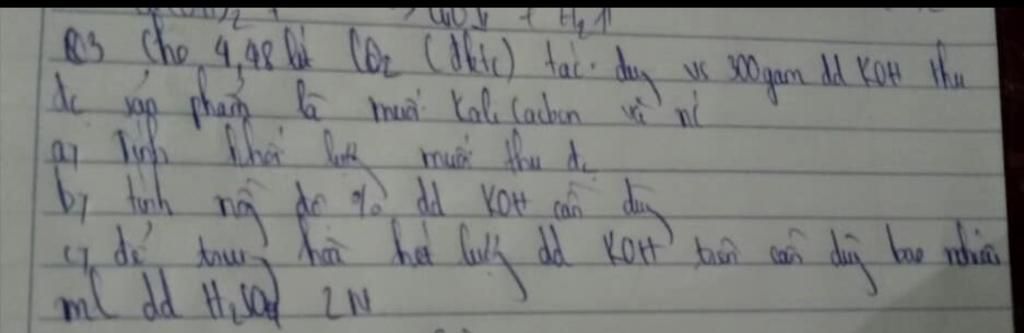 B3 Cho 4,48 lít CO2 (đktc) tác dụng vs 300gam dd KOH thu
đc sản phẩm là muối Kali Cacbon và nc
a) Tính khối lượng muối thu đc
b) tính nồng độ % dd KOH cần dùng
c) để trung hoà hết lượng dd KOH trên cần dùng bao nhiêu
ml dd H2SO4 2N